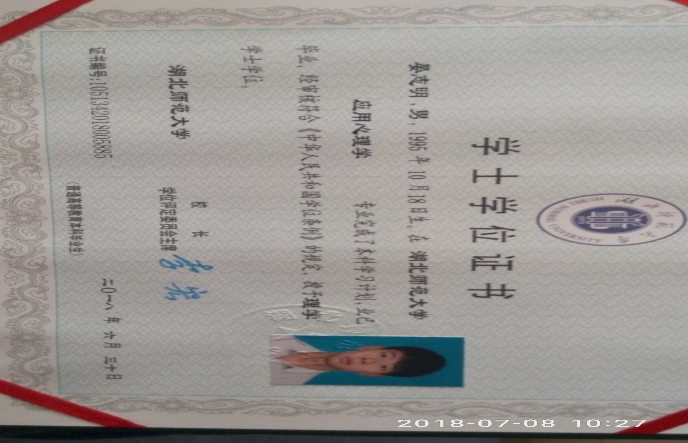 学士学位证书
男，1995 年 10 月 18 日生。在 湖北师范大学
应用心理学 专业完成了本科学习计划，业已
毕业，经审核符合《中华人民共和国学位条例》的规定，授予理学
学士学位。
湖北师范大学
校 长
学位评定委员会主席
证书编号：1051342018006885
二〇一八 年 六 月 三十 日
（普通高等教育本科毕业生
2018-07-08 10:27